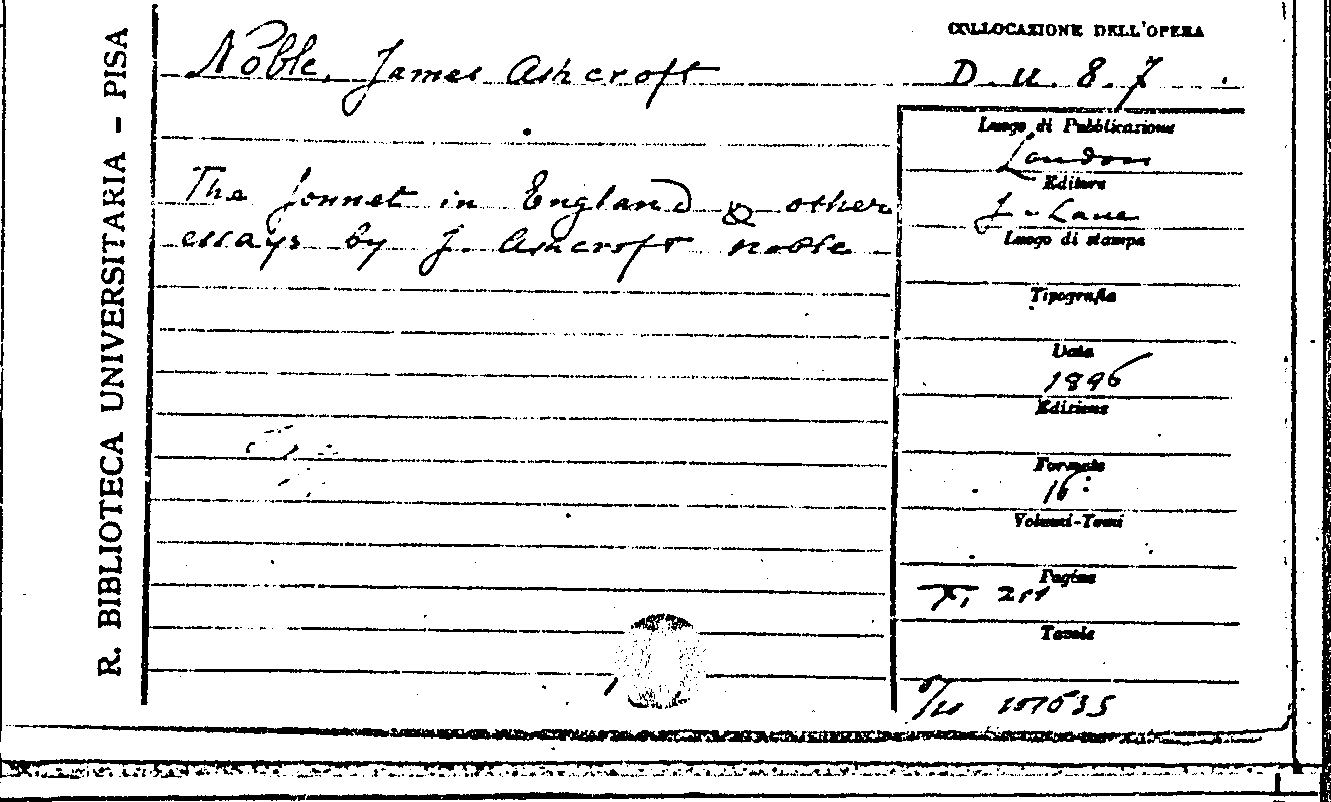 R. BIBLIOTECA UNIVERSITARIA - PISA
Noble, James Ashcroft
The sonnet in England & other
essays by J. Ashcroft Noble
COLLOCAZIONE DELL'OPERA
D. u. 8. 7
Luogo di Pubblicazione
London
Editore
J. Lane
Luogo di stampa
Tipografia
Data
1896
Edizione
Formato
16°
Volumi-Tomi
Pagine
X, 211
Tavole